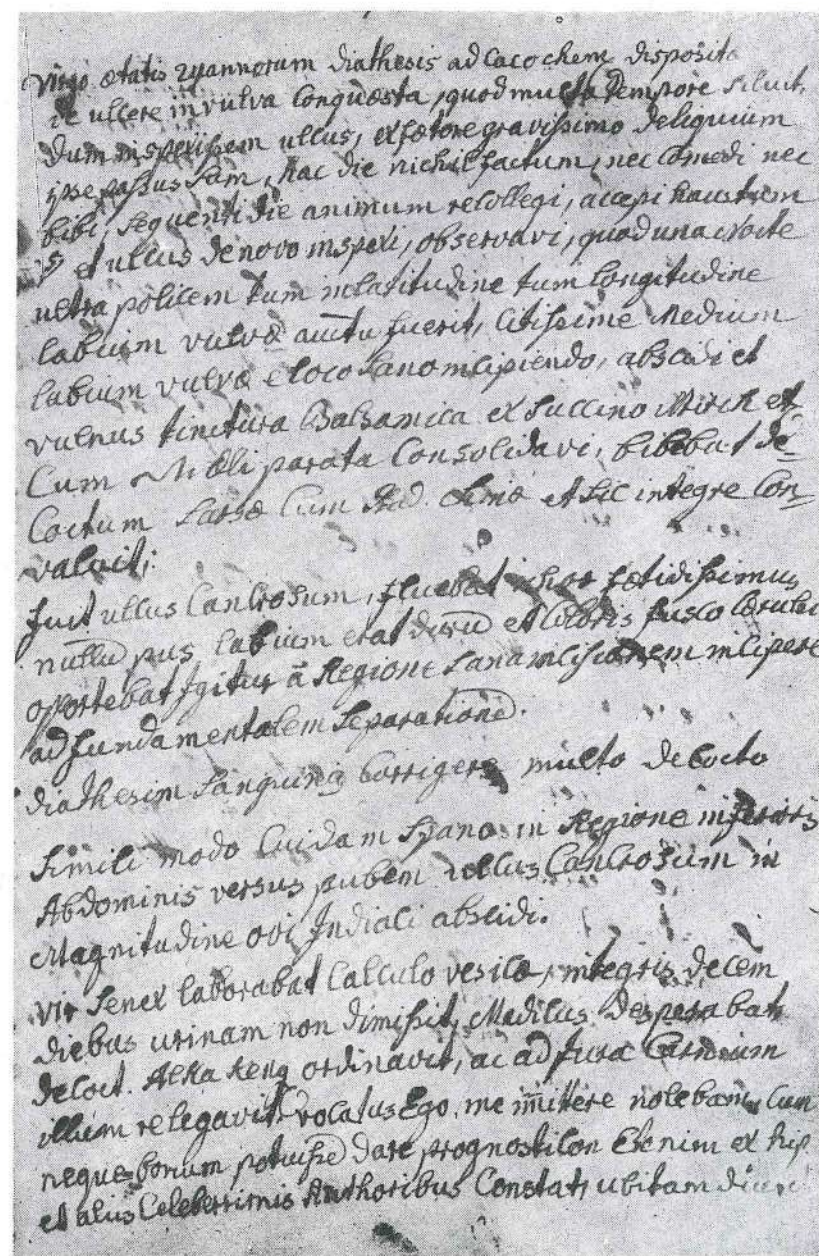 Virgo ætatis 24 annorum diathesis ad Cacochem disposita
de ullcere in vulva Conquæsta, quod multa tempore siluit,
dum inspexissem ullcus, ex fœtore gravissimo deliquium
ipse passus sum, hac die nichil factum, nec Comedi nec
bibi, sequenti die animum recollegi, accepi haustum
et ullcus de novo inspexi, observavi, quod una nocte
ultra policem tum in latitudine tum longitudine
labium vulvæ auctu fuerit, Citissime Medium
labium vulvæ e loco sano incipiendo, abscidi et
vulnus tinctura Balsamica ex Succino Mirrh et
Cum Melli parata Consolidavi, bibebat de-
Coctum Sarsæ Cum Rad. Chinæ et sic integre Con-
valuit;
fuit ullcus Cancrosum, fluebat ichor fœtidissimus
nullu pus labium erat duru et Coloris fusco Cœrulei
oportebat igitur a Regione sana incisionem incipere
ad fundamentalem separatione.
diathesim sanguinis Corrigere multo decocto
Simili modo Cuidam in Regione inferioris
Abdominis versus pubem ullcus Cancrosum in
Magnitudine ovi Indiali abscidi.
Vir Senex laborabat Calculo vesicæ, integris decem
diebus urinam non dimisit, Medicus desperabat
decoct. Alka Keng ordinavit, ac ad jura Carnium
illum relegavit, vocatus Ego, me imittere nolebam, Cum
neque bonum potuisse dare prognosticon Etenim ex Hip
et aliis Celeberrimis Authoribus Constat, ubi tam